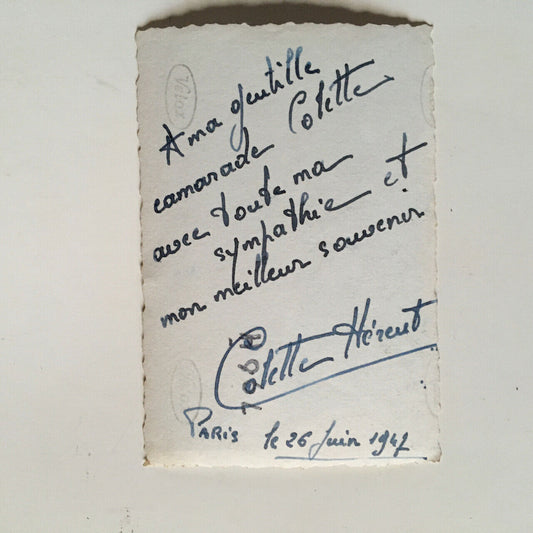 A ma gentille
camarade Colette
avec toute ma
sympathie et
mon meilleur souvenir
Colette Hérent
PARIS le 26 Juin 1947
Velox